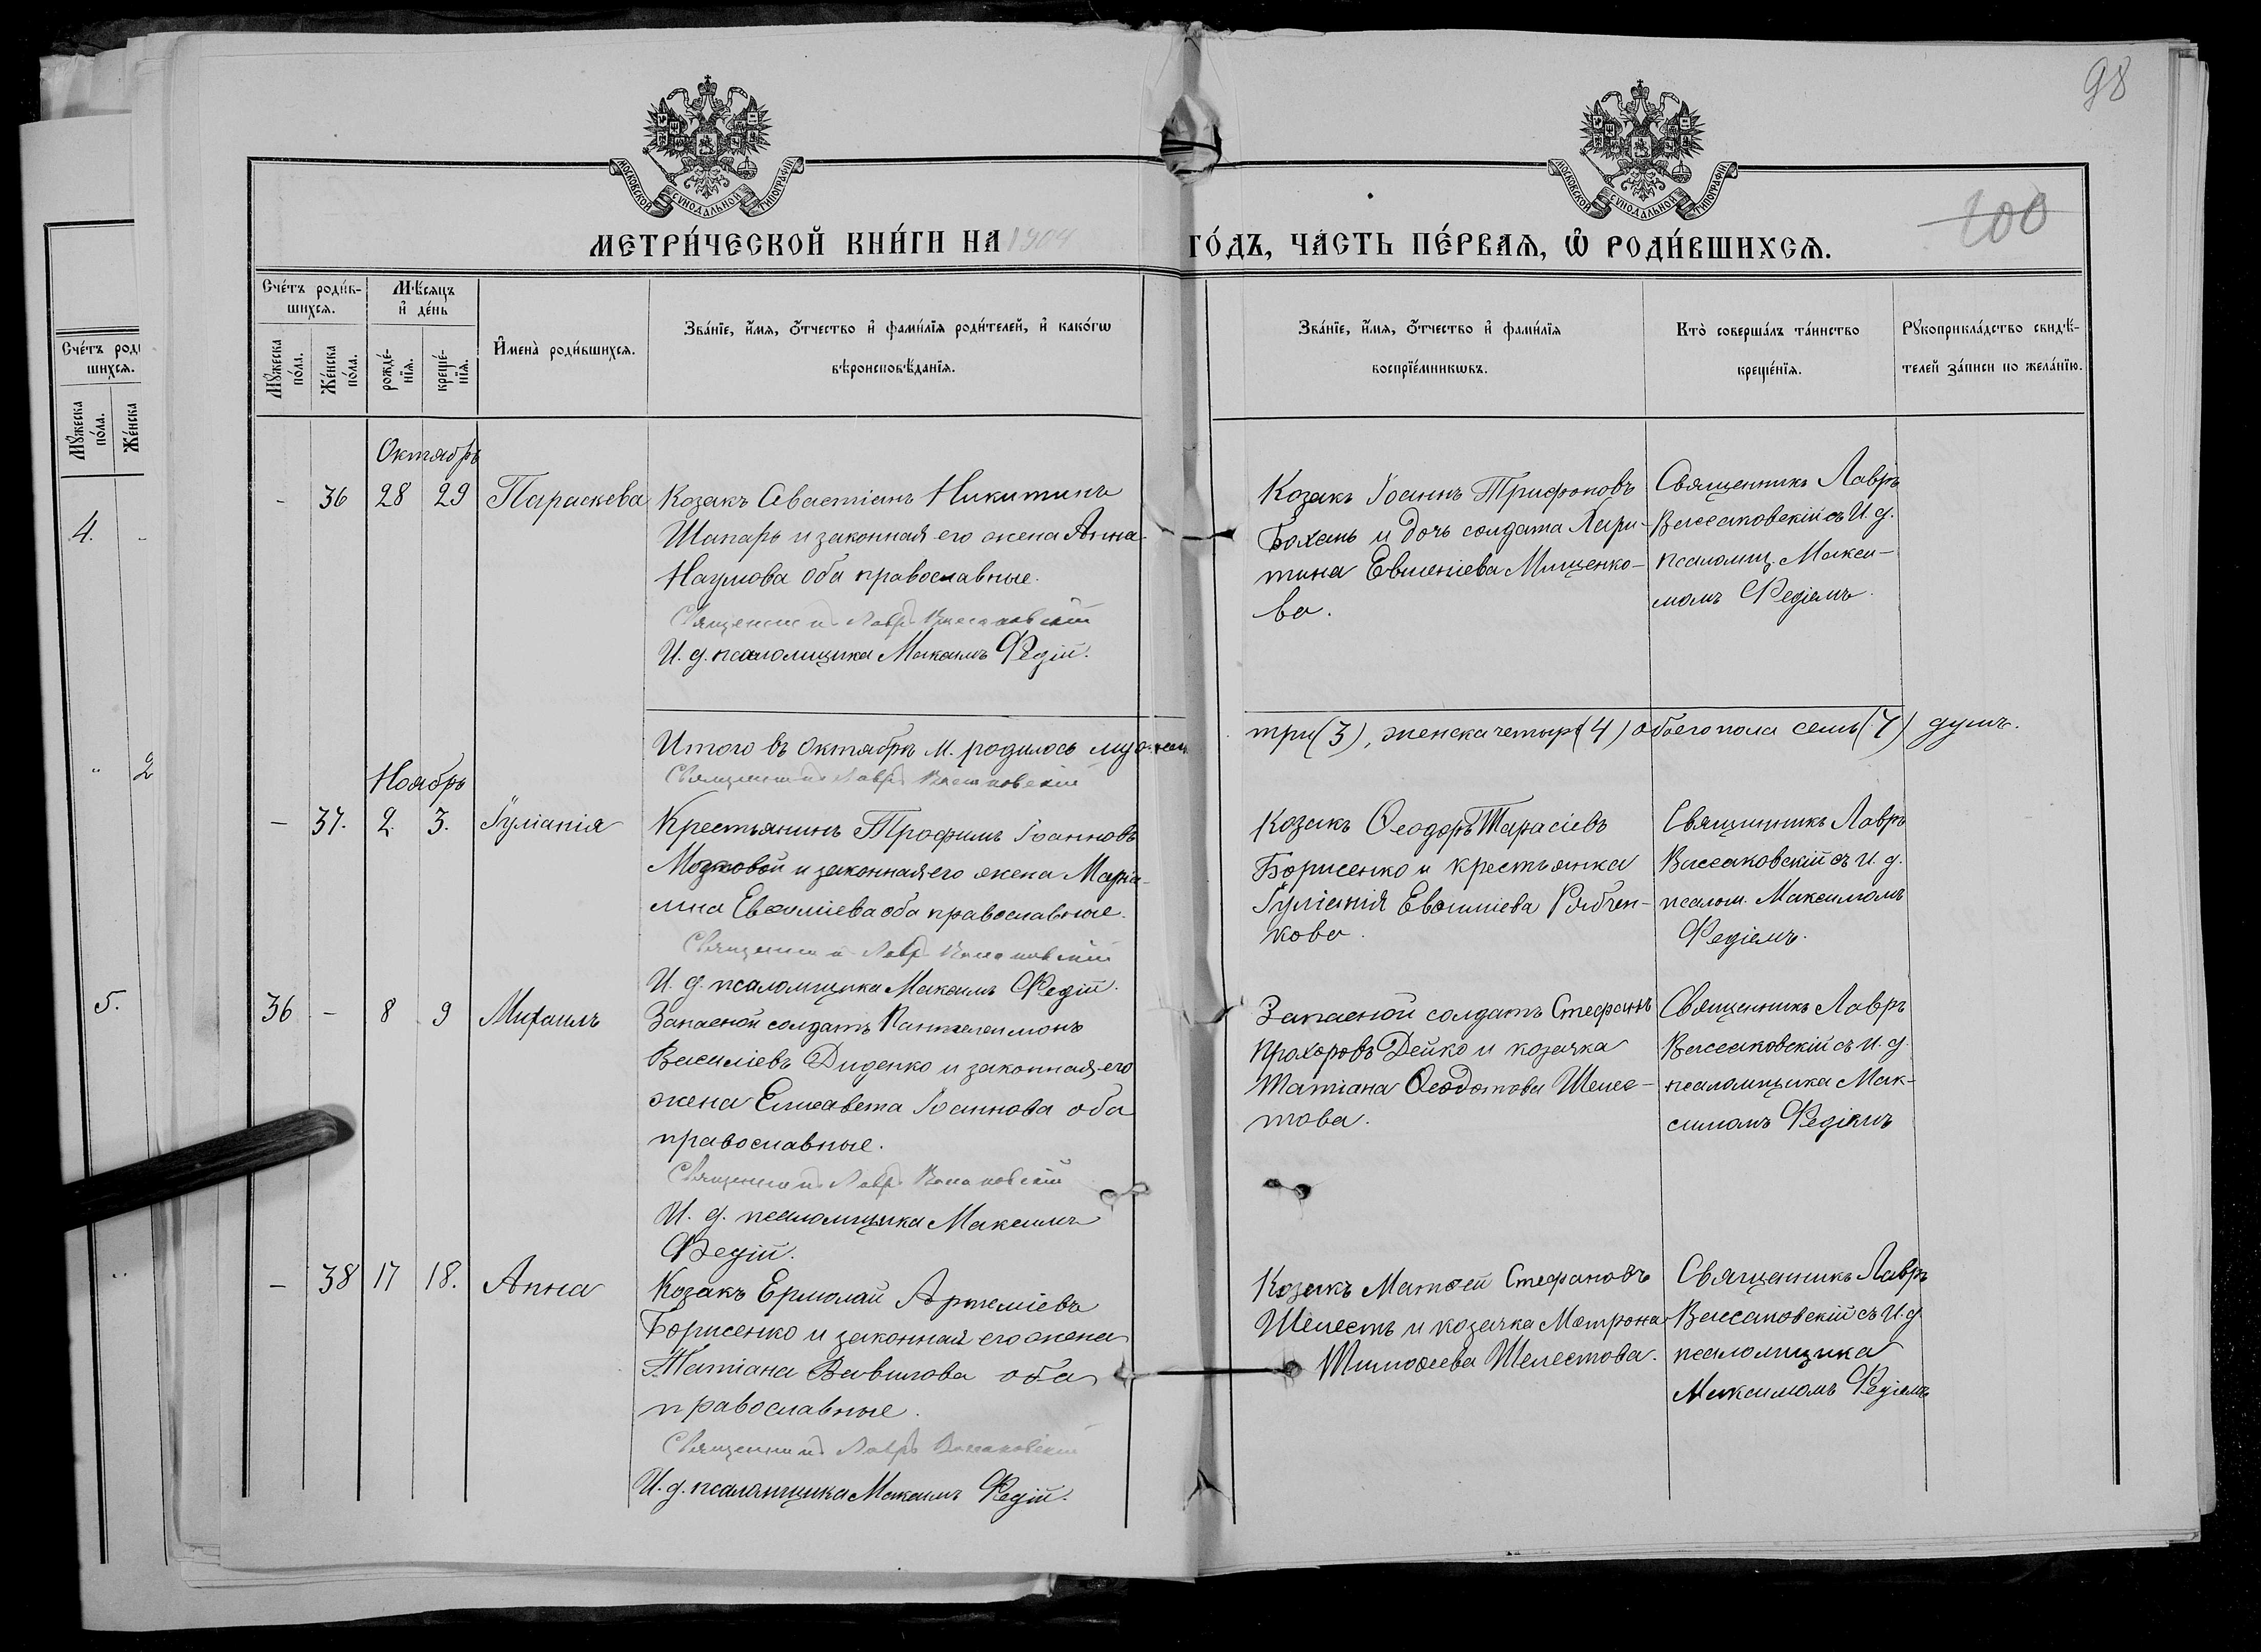 98
100
МОСКОВСКОЙ СѴНОДАЛЬНОЙ ТИПОГРАФІИ
МОСКОВСКОЙ СѴНОДАЛЬНОЙ ТИПОГРАФІИ
МЕТРИ́ЧЕСКОЙ КНИ́ГИ НА 1904 ГО́ДЪ, ЧА́СТЬ ПЕ́РВАѦ, Ѡ҆ РОДИ́ВШИХСѦ.
Сче́тъ роди́в-
шихсѧ.
Мꙋ́жеска
по́ла.
Же́нска
по́ла.
Мѣ́сѧцъ
и҆ де́нь
рожде́-
нїѧ.
креще́-
нїѧ.
И҆мена̀ роди́вшихсѧ.
Зва́нїе, и҆́мѧ, ѻ҆́тчество и҆ фами́лїѧ роди́телей, и҆ како́гѡ
вѣроисповѣ́данїѧ.
Зва́нїе, и҆́мѧ, ѻ҆́тчество и҆ фами́лїѧ
воспрїе́мникѡвъ.
Кто̀ соверша́лъ та́инство
креще́нїѧ.
Рꙋкоприкла́дство свидѣ́-
телей за́писи по жела́нїю.
Сче́тъ роди
шихсѧ.
Мꙋ́жеска
по́ла.
Же́нска
4. -
" 2
5.
"
Октябрь
- 36 28 29 Параскева
Козакъ Севастіанъ Никитинъ
Шапарь и законная его жена Анна
Наумова оба православные.
Священникъ Лавръ Вассаковскій
И. д. псаломщика Максимъ Ѳедій.
Козакъ Іоаннъ Трифоновъ
Бохань и дочь солдата Хари-
тина Евменіева Мищенко-
ва.
Священникъ Лавръ
Вассаковскій съ И. д.
псаломщ. Макси-
момъ Ѳедіемъ.
Итого въ Октябрѣ м. родилось мужеска три (3), женска четыре (4) обоего пола семь (7) душъ.
Священникъ Лавръ Вассаковскій
Ноябрь
- 37. 2. 3. Іуліанія
Крестьянинъ Трофимъ Іоанновъ
Мозговой и законная его жена Маріа-
мна Евѳиміева оба православные.
Священникъ Лавръ Вассаковскій
И. д. псаломщика Максимъ Ѳедій.
Козакъ Ѳеодоръ Тарасіевъ
Борисенко и крестьянка
Іуліанія Евѳиміева Рябчен-
кова.
Священникъ Лавръ
Вассаковскій съ и. д.
псалом. Максимомъ
Ѳедіемъ.
36 - 8 9 Михаилъ
Запасной солдатъ Пантелеимонъ
Василіевъ Диденко и законная его
жена Елисавета Іоаннова оба
православные.
Священникъ Лавръ Вассаковскій
И. д. псаломщика Максимъ
Ѳедій.
Запасной солдатъ Стефанъ
Прохоровъ Дейко и козачка
Татіана Ѳеодотова Шелес-
това.
Священникъ Лавръ
Вассаковскій съ и. д.
псаломщика Мак-
симомъ Ѳедіемъ
- 38 17 18. Анна
Козакъ Ермолай Артеміевъ
Борисенко и законная его жена
Татіана Вавилова оба
православные.
Священникъ Лавръ Вассаковскій
И. д. псаломщика Максимъ Ѳедій.
Козакъ Матѳей Стефановъ
Шелестъ и козачка Матрона
Тимоѳеева Шелестова.
Священникъ Лавръ
Вассаковскій съ И. д.
псаломщика
Максимомъ Ѳедіемъ